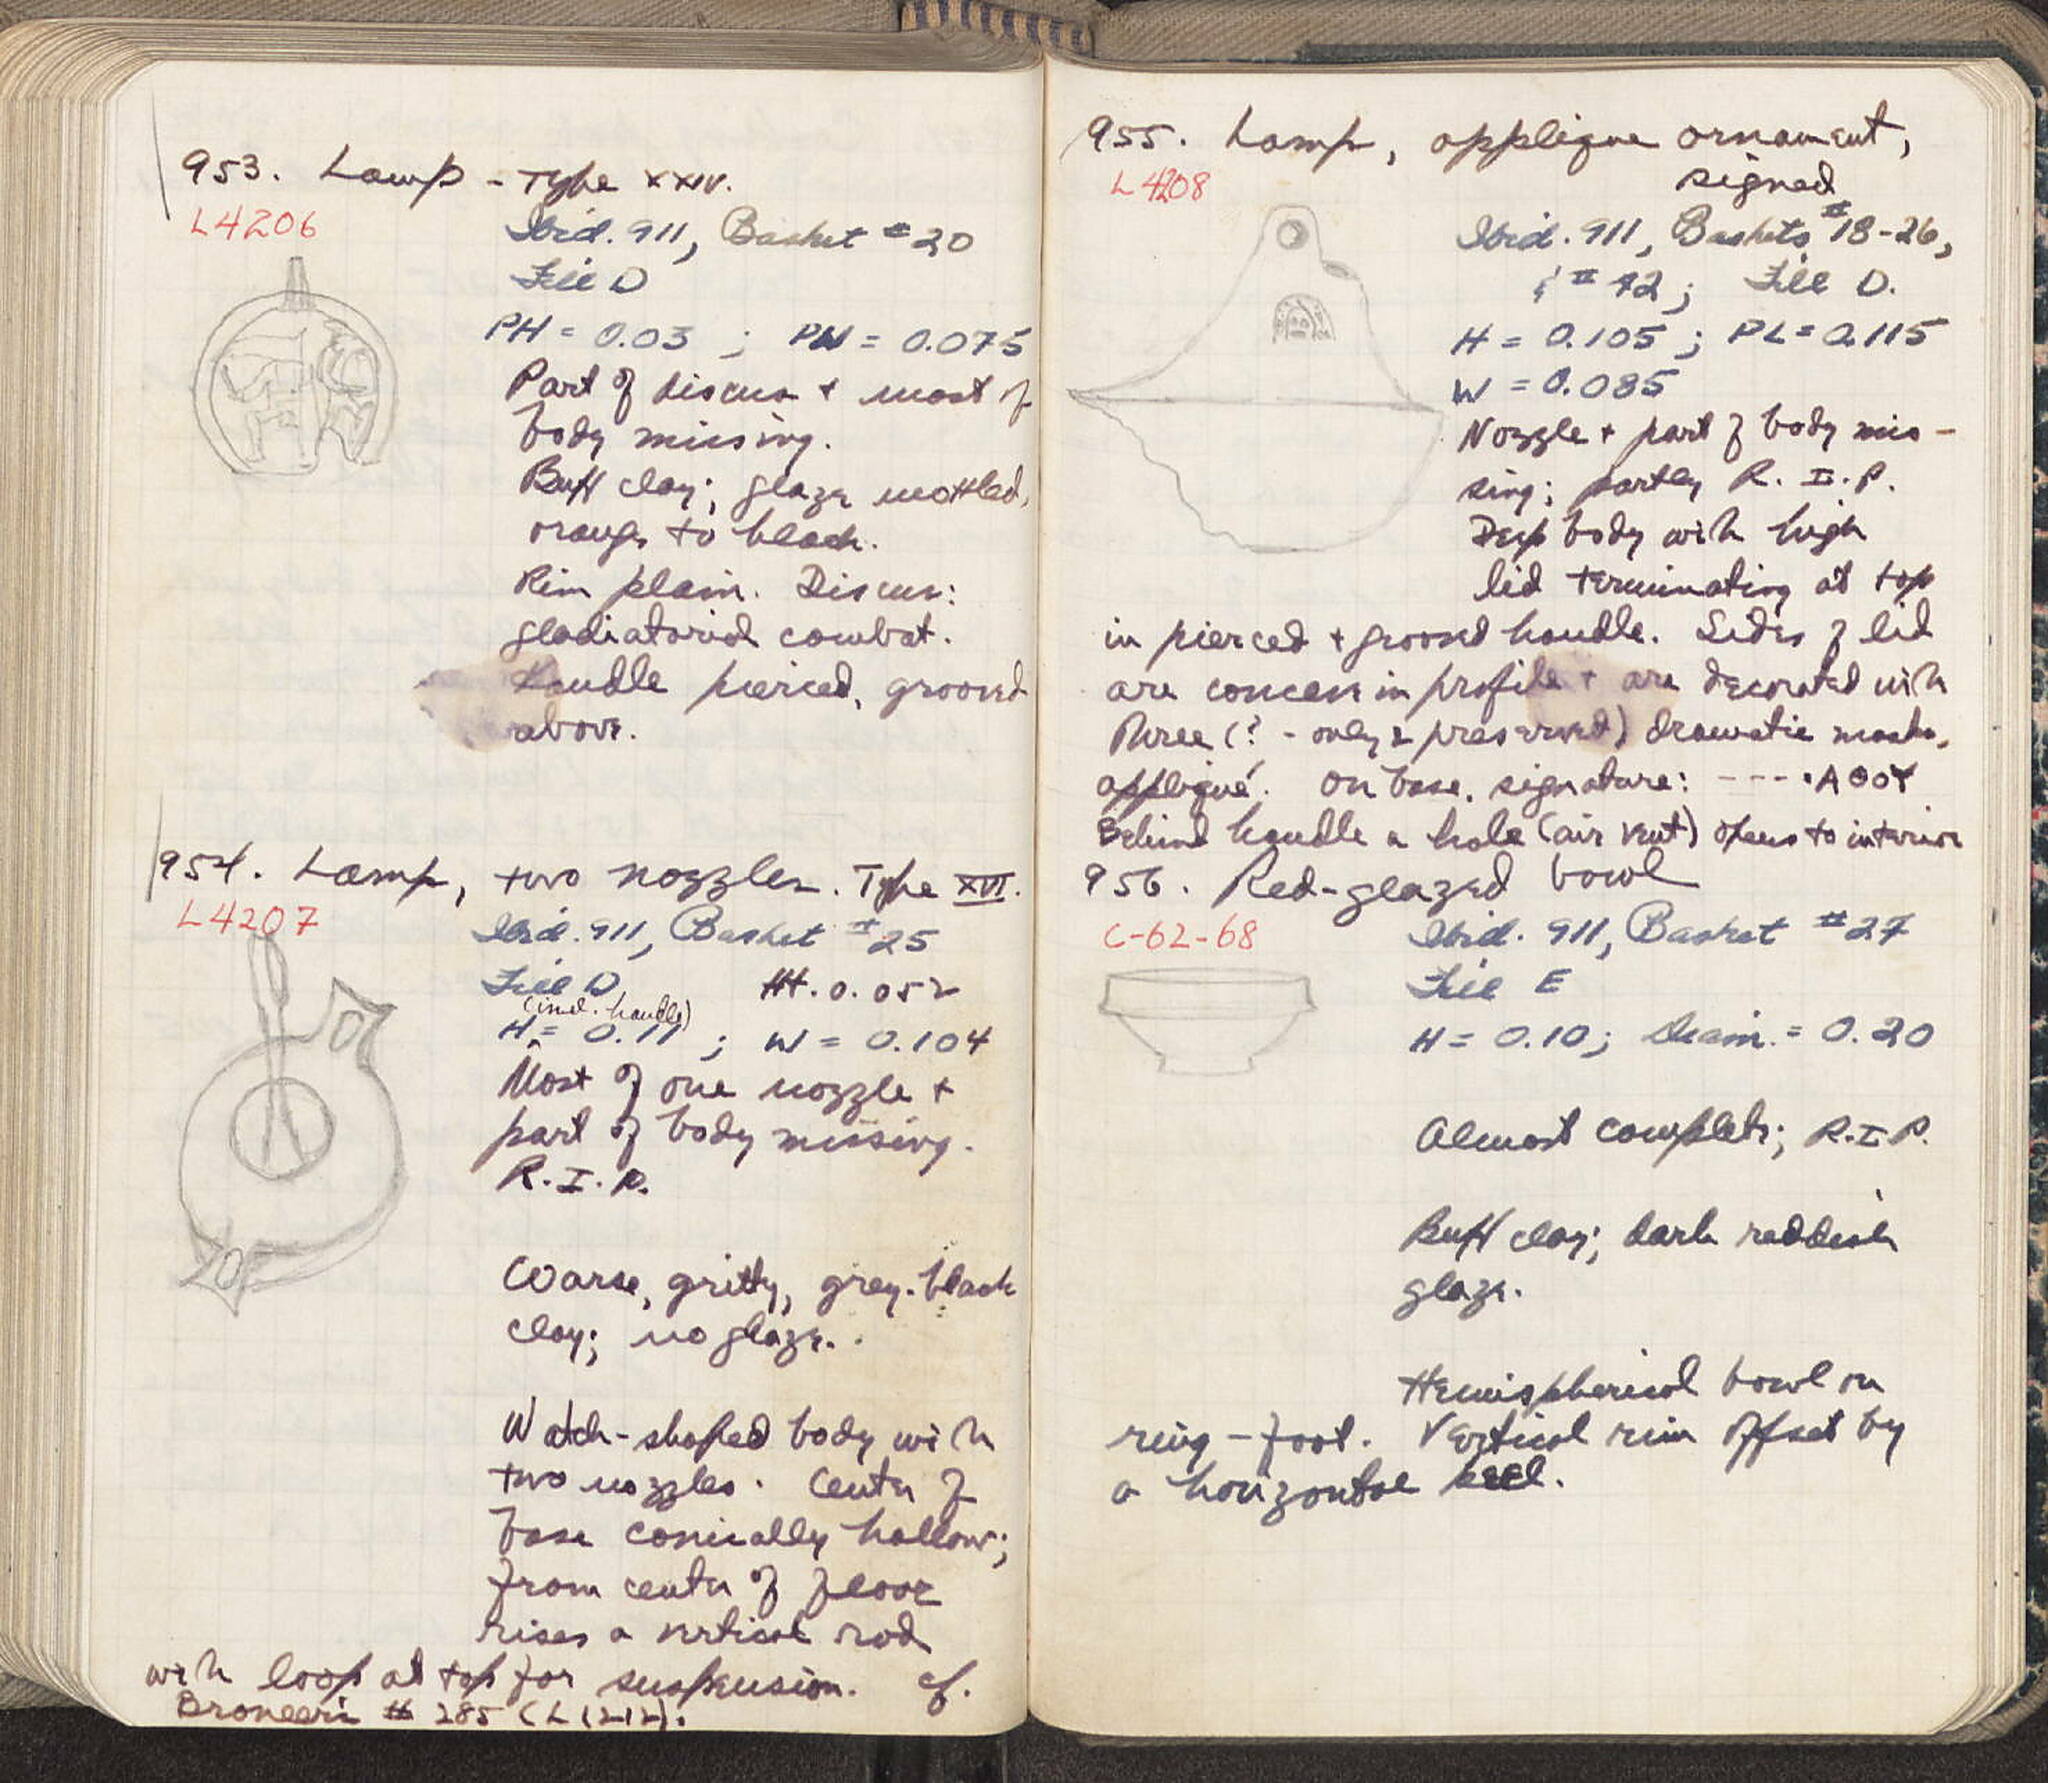 953. Lamp - Type XXIV.
L4206
Ibid. 911, Basket #20
Fill D
PH = 0.03 ; PW = 0.075
Part of discus + most of
body missing.
Buff clay; glaze mottled,
orange to black.
Rim plain. Discus:
gladiatorial combat.
Handle pierced, grooved
above.
954. Lamp, two nozzles. Type XVI.
L4207
Ibid. 911, Basket #25
Fill D Ht. 0.052
(incl. handle)
H = 0.11 ; W = 0.104
Most of one nozzle +
part of body missing.
R.I.P.
Coarse, gritty, grey-black
clay; no glaze.
Watch-shaped body with
two nozzles. Center of
base conically hollow;
from center of floor
rises a vertical rod
with loop at top for suspension. cf.
Broneer's # 285 (L 1212).
955. Lamp, applique ornament,
signed
L4208
Ibid. 911, Baskets #18-26,
& # 42; Fill D.
H = 0.105; PL = 0.115
W = 0.085
Nozzle + part of body mis-
sing; partly R.I.P.
Deep body with high
lid terminating at top
in pierced + grooved handle. Sides of lid
are concave in profile + are decorated with
three (? - only 2 preserved) dramatic masks,
appliqué. On base, signature: ---- •ΑΘΟΥ
Behind handle a hole (air vent) opens to interior
956. Red-glazed bowl
C-62-68
Ibid. 911, Basket #27
Fill E
H = 0.10; Diam. = 0.20
Almost complete; R.I.P.
Buff clay; dark reddish
glaze.
Hemispherical bowl on
ring-foot. Vertical rim offset by
a horizontal keel.